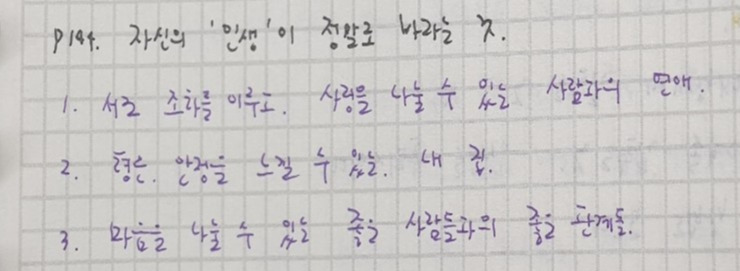 P194. 자신의 '인생'이 정말로 바라는 것.
1. 서로 조화를 이루고. 사랑을 나눌 수 있는 사람과의 연애.
2. 평온. 안정을 느낄 수 있는. 내 집.
3. 마음을 나눌 수 있는 좋은 사람들과의 좋은 관계들.